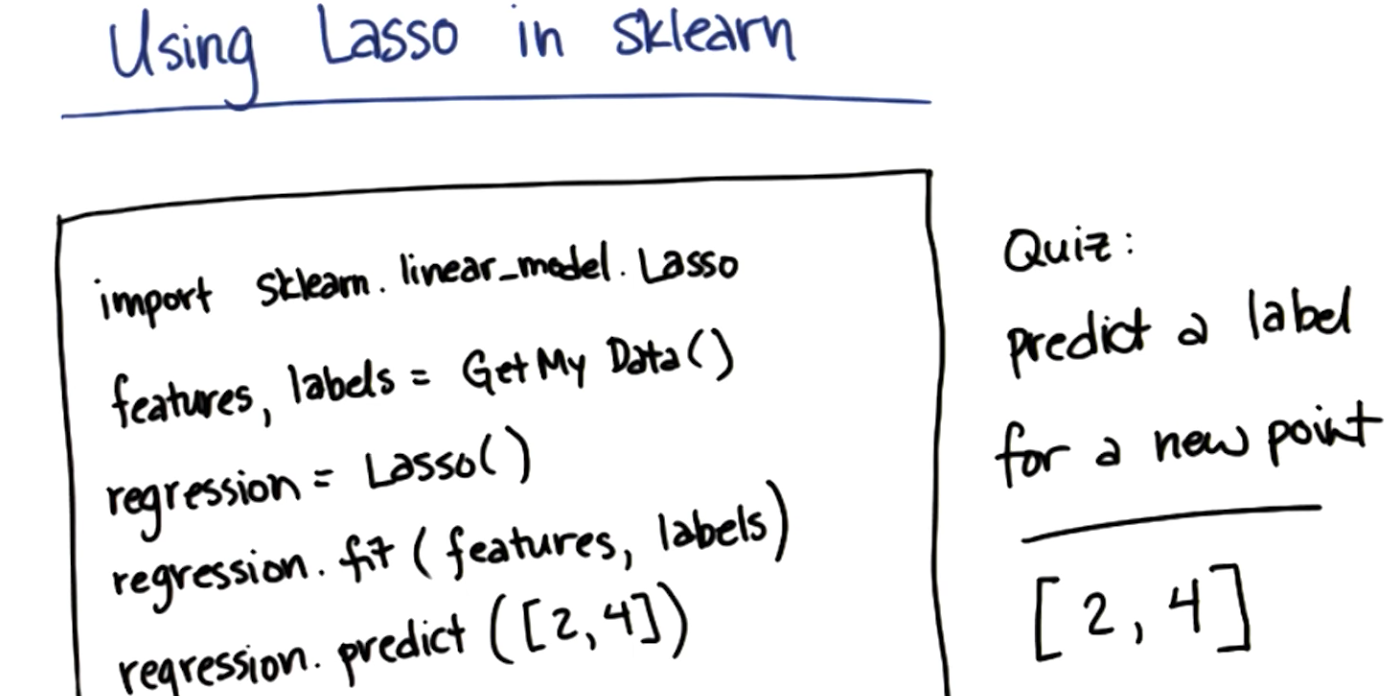 Using Lasso in sklearn
import sklearn.linear_model.Lasso
features, labels = GetMyData()
regression = Lasso()
regression.fit(features, labels)
regression.predict([2,4])
Quiz:
predict a label
for a new point
[2,4]